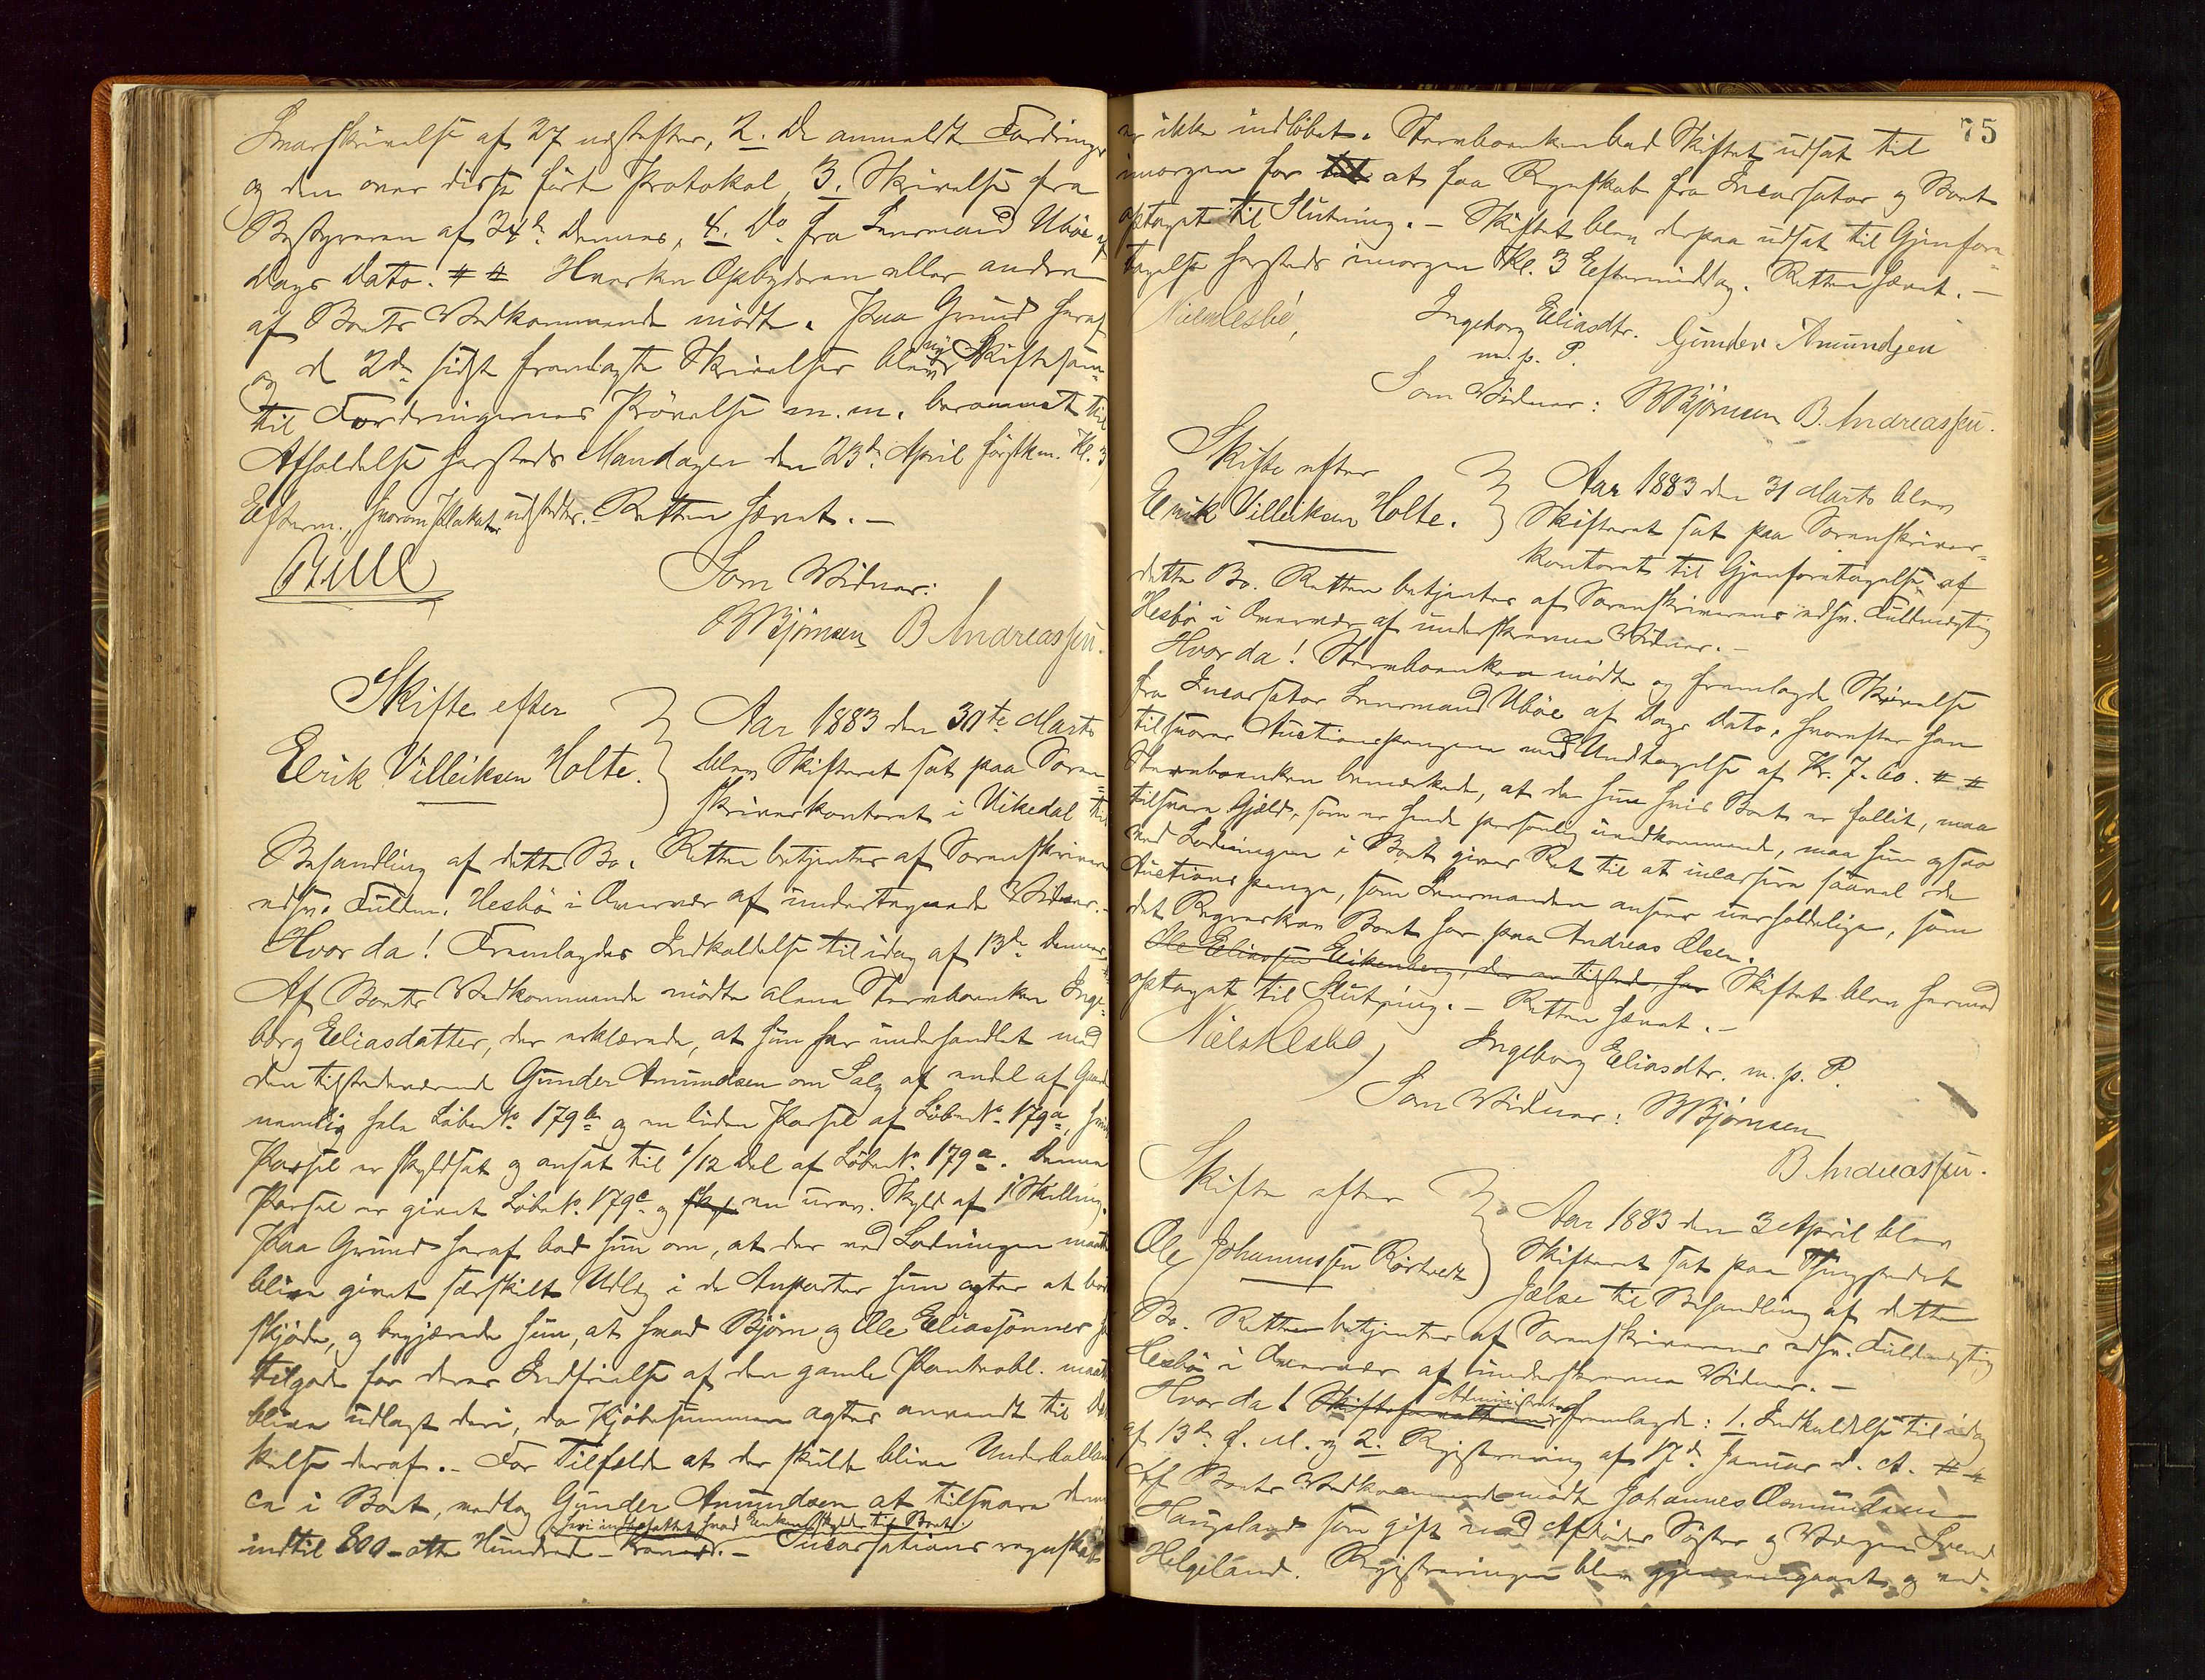 Svarskrivelse af 27 næstefter, 2. De anmeldte Fordringer
og den over disse førte Protokol, 3. Skrivelse fra
Bestyreren af 24de dennes, 4. Do fra Lensmand Ubøe af
Dags Dato. # # Hverken Opbyderen eller andre
af Boets Vedkommende mødte. Paa Grund heraf
og d 2de sidst fremlagte Skrivelser blev ny Skiftesam-
til Fordringernes Prøvelse m.m. berammet til
Afholdelse hersteds Mandagen den 23de April førstkm. Kl. 3
Efterm., hvorom Plakater udstedtes. Retten hævet. -
Som Vidner:
OBjørnsen B Andreassen.
Skifte efter
Eerik Villeiksen Holte.
Aar 1883 den 30te Marts
blev Skifteret sat paa Soren-
skriverkontoret i Vikedal til
Behandling af dette Bo. Retten betjentes af Sorenskriverens
edsv. Fuldm. Hesbø i Overvær af undertegnede Vidner. -
Hvor da! Fremlagdes Indkaldelse til idag af 13de dennes. #
Af Boets Vedkommende mødte alene Stervboenken Inge-
borg Eeliasdatter, der erklærede, at hun har underhandlet med
den tilstedeværende Gunder Amundsen om Salg af endel af Gaarden
nemlig hele Løbe No. 179b og en liden Parsel af Løbe No. 179a, hvis
Parsel er skyldsat og ansat til 1/12 Del af Løbe No. 179a. Denne
Parsel er givet Løbe No. 179c og sky en urev. Skyld af 1 Skilling.
Paa Grund heraf bad hun om, at der ved Lodningen maatte
blive givet særskilt Udlæg i de Anparter hun agter at bort
skjøde, og begjærede hun, at hvad Bjørn og Ole Eeliassønner har
tilgode for deres Indfrielse af den gamle Panteobl. maatte
blive udlagt deri, da Kjøbesummen agtes anvendt til Dæk
kelse deraf. - For Tilfælde at der skulde blive Underballan
ce i Boet, vedtog Gunder Amundsen at tilsvare denne
heri indbefattet hvad Eenken skylder til Boet
indtil 800 - otte Hundrede - Kroner. - Incassationsregnskab
75
er ikke indløbet. Stervboenken bad Skiftet udsat til
imorgen for at faa Regnskab fra Incassator og Boet
optaget til Slutning. - Skiftet blev derpaa udsat til Gjenfore-
tagelse hersteds imorgen Kl. 3 Eeftermiddag. Retten hævet. -
Niels Hesbø, Ingeborg Eeliasdtr. Gunder Amundsen
m. p. P.
Som Vidner: OBjørnsen B. Andreassen.
Skifte efter
Eerik Villeiksen Holte.
Aar 1883 den 31 Marts blev
Skifteret sat paa Sorenskriver-
kontoret til Gjenforetagelse af
dette Bo. Retten betjentes af Sorenskriverens edsv. Fuldmægtig
Hesbø i Overvær af underskrevne Vidner. -
Hvor da! Stervboenken mødte og fremlagde Skrivelse
fra Incassator Lensmand Ubøe af Dags Dato, hvorefter han
tilsvarer Auctionspengene med Undtagelse af Kr. 7.60. # #
Stervboenken bemærkede, at da hun hvis Boet er fallit, maa
tilsvare Gjæld, som er hende personlig uvedkommende, maa hun ogsaa
ved Lodningen i Boet gives Ret til at incassere saavel de
Auctionspenge, som Lensmanden anser uerholdelige, som
det Regnskrav Boet har paa Andreas Olsen.
Ole Eeliassen Eikenberg, der er tilstede, har Skiftet blev hermed
optaget til Slutning. - Retten hævet. -
Niels Hesbø, Ingeborg Eeliasdtr. m. p. P.
Som Vidner: OBjørnsen
B Andreassen.
Skifte efter
Ole Johannessen Rørtvedt
Aar 1883 den 3 April blev
Skifteret sat paa Thingstedet
Jælse til Behandling af dette
Bo. Retten betjentes af Sorenskriverens edsv. Fuldmægtig
Hesbø i Overvær af underskrevne Vidner. -
Hvor da! Skifteforvalteren Administrator fremlagde: 1. Indkaldelse til idag
af 13de f. M. og 2. Registrering af 17de Januar d. A. # #
Af Boets Vedkommende mødte Johannes Osmundsen
Haugeland som gift med Afdødes Søster og Værgen Svend
Helgeland. Registreringen blev gjennemgaaet og ved-